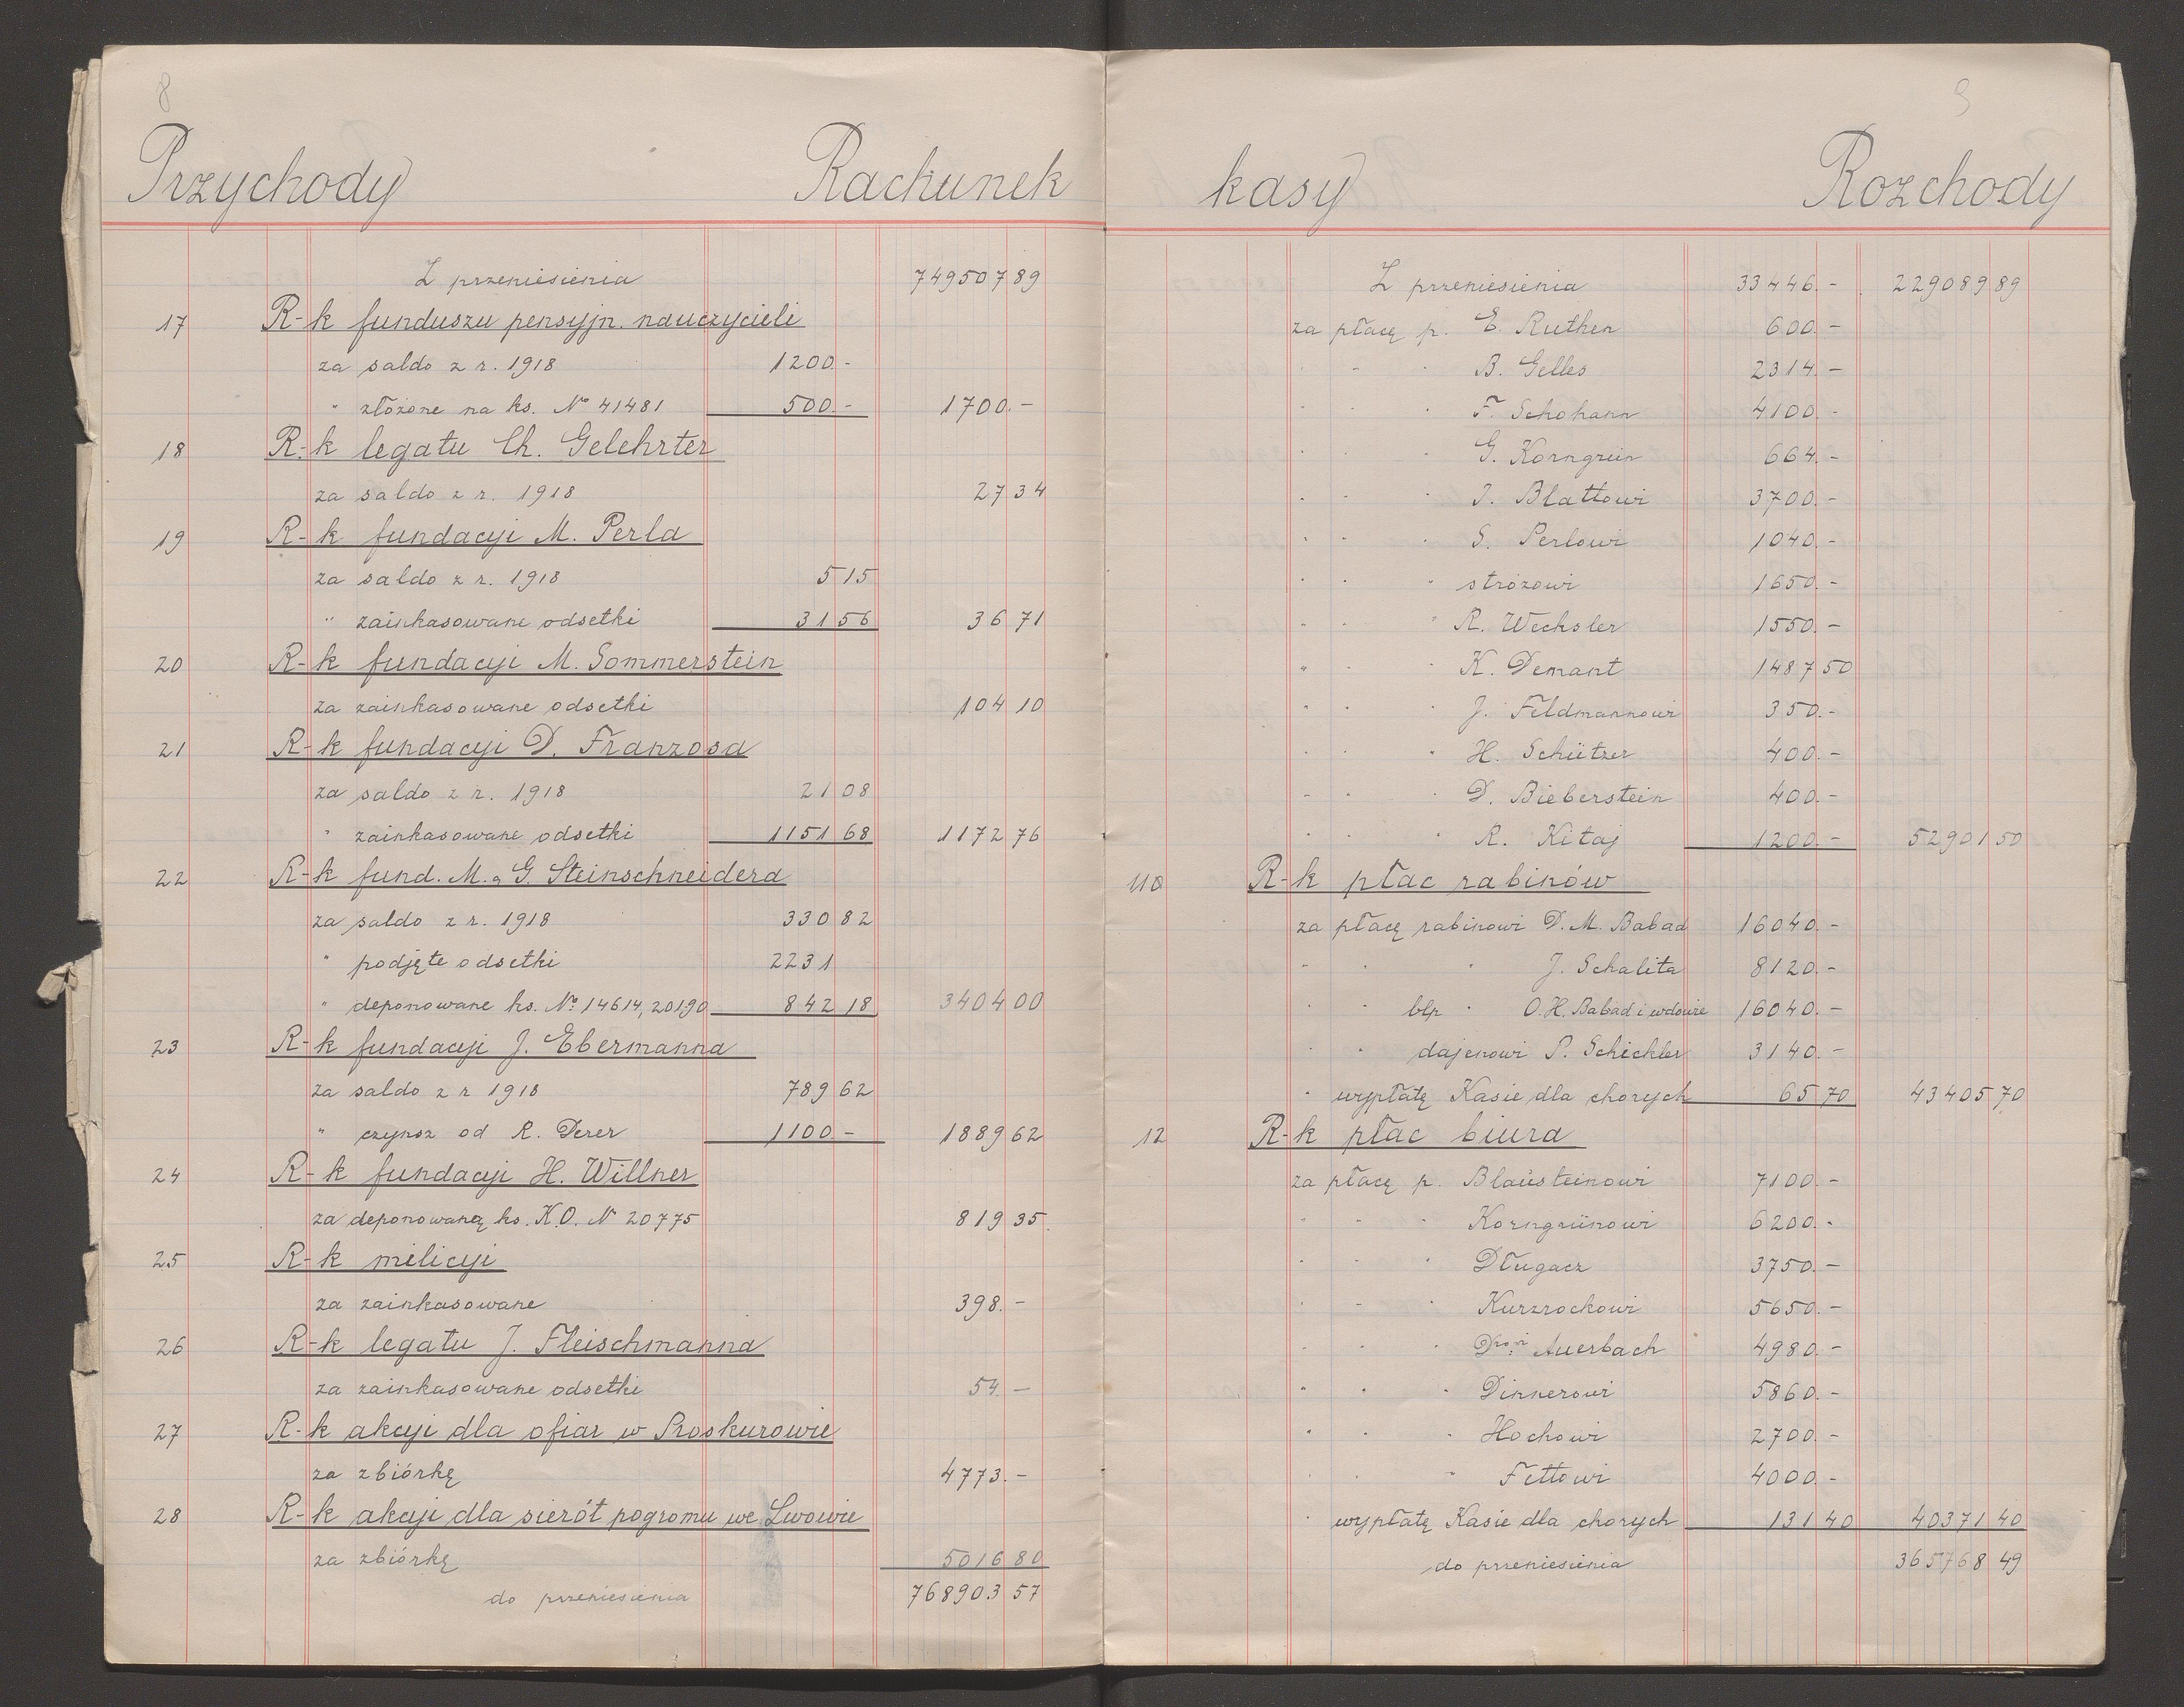 8
Przychody Rachunek
Z przeniesienia 749507 89
17 R-k funduszu pensyjn. nauczycieli
za saldo z r. 1918 1200.-
" złożone na ks. No 41481 500.- 1700.-
18 R-k legatu Ch. Gelehrter
za saldo z r. 1918 27 34
19 R-k fundacyi M. Perla
za saldo z r. 1918 5 15
" zainkasowane odsetki 31 56 36 71
20 R-k fundacyi M. Sommerstein
za zainkasowane odsetki 104 10
21 R-k fundacyi D. Franzosa
za saldo z r. 1918 21 08
" zainkasowane odsetki 1151 68 1172 76
22 R-k fund. M. G. Steinschneidera
za saldo z r. 1918 330 82
" podjęte odsetki 2231
" deponowane ks. No 14614, 20190 842 18 3404 00
23 R-k fundacyi J. Ebermanna
za saldo z r 1918 789 62
" czynsz od R. Derer 1100.- 1889 62
24 R-k fundacyi H. Willner
za deponowaną ks. K.O. N 20775 819 35
25 R-k milicyi
za zainkasowane 398.-
26 R-k legatu J. Fleischmanna
za zainkasowane odsetki 54.-
27 R-k akcyi dla ofiar w Proskurowie
za zbiórkę 4773.-
28 R-k akcyi dla sierót pogromu we Lwowie
za zbiórkę 5016 80
do przeniesienia 768903 57
9
kasy Rozchody
Z przeniesienia 33446.- 229089 89
za płacę p. E. Ruthen 600.-
" " " B. Gelles 2314.-
" " " F. Schohann 4100.-
" " " G. Korngrün 664.-
" " " I. Blattowi 3700.-
" " " S. Perlowi 1040.-
" " " stróżowi 1650.-
" " " R. Wechsler 1550.-
" " " K. Demant 1487 50
" " " J. Feldmannowi 350.-
" " " H. Schützer 400.-
" " " D. Bieberstein 400.-
" " " R. Kitaj 1200.- 52901 50
110 R-k płac rabinów
za płacę rabinowi D. M. Babad 16040.-
" " " J. Schalita 8120.-
" " błp " O. H. Babad i wdowie 16040.-
" " dajenowi P. Schickler 3140.-
" wypłatę Kasie dla chorych 65 70 43405 70
12 R-k płac biura
za płacę p. Blausteinowi 7100.-
" " " Korngrünowi 6200.-
" " " Długacz 3750.-
" " " Kurzrockowi 5650.-
" " " Auerbach 4980.-
" " " Dinnerowi 5860.-
" " " Hochowi 2700.-
" " " Fettowi 4000.-
" wypłatę Kasie dla chorych 131 40 40371 40
do przeniesienia 365768 49